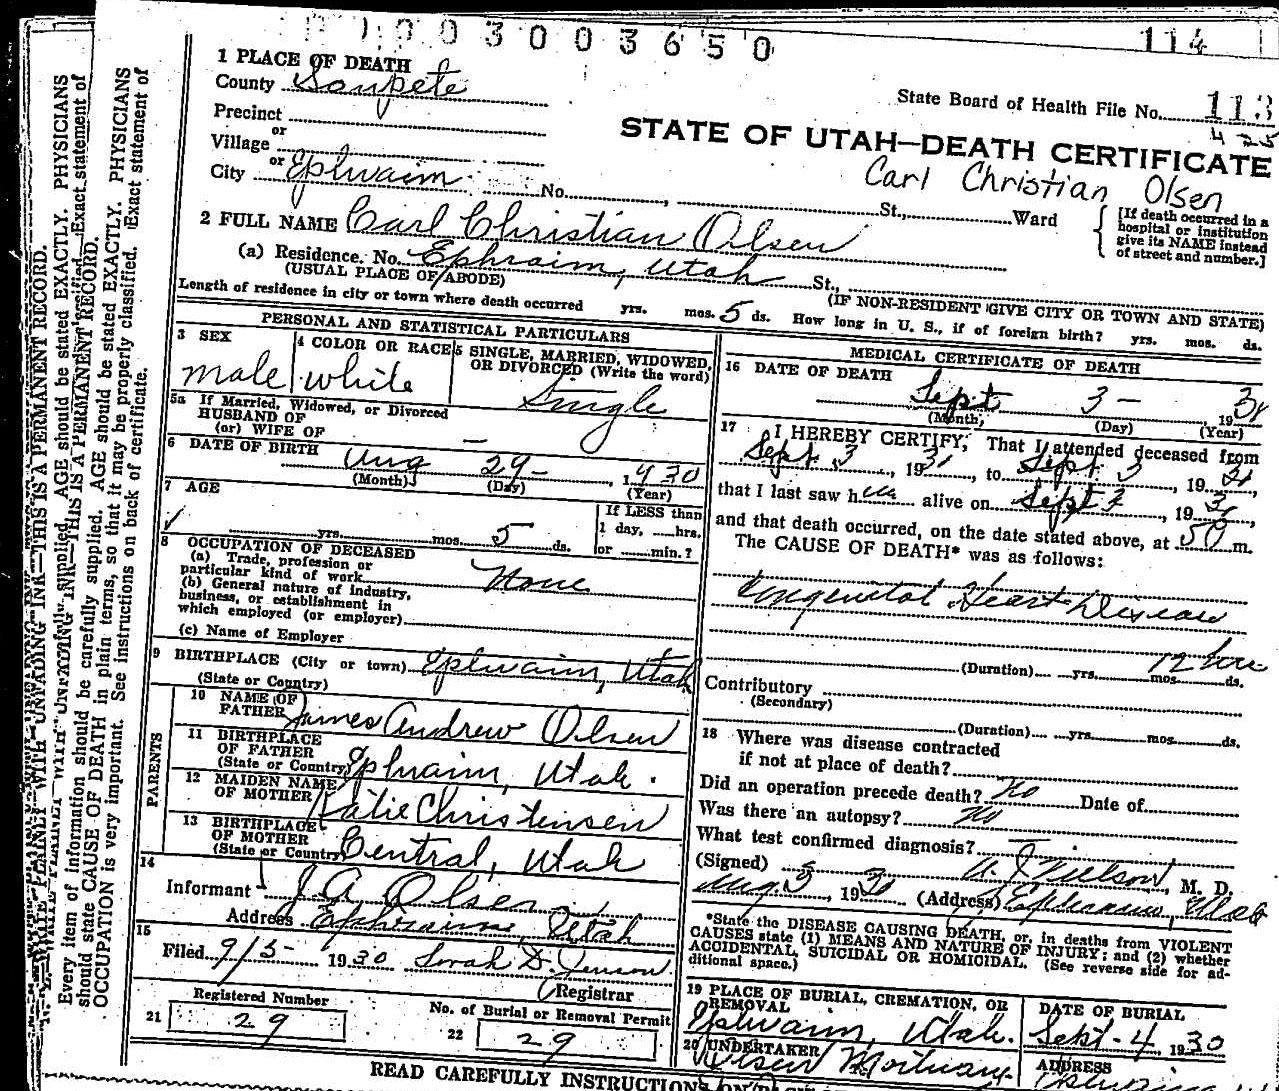 1003003650 114
1 PLACE OF DEATH
County Sanpete
State Board of Health File No. 113
425
Precinct
or
Village
or
City Ephraim No. St., Ward
STATE OF UTAH—DEATH CERTIFICATE
Carl Christian Olsen
{ [If death occurred in a hospital or institution give its NAME instead of street and number.]
2 FULL NAME Carl Christian Olsen
(a) Residence. No. Ephraim, Utah St.,
(USUAL PLACE OF ABODE) (IF NON-RESIDENT GIVE CITY OR TOWN AND STATE)
Length of residence in city or town where death occurred yrs. mos. 5 ds. How long in U. S., if of foreign birth? yrs. mos. ds.
PERSONAL AND STATISTICAL PARTICULARS
3 SEX
male
4 COLOR OR RACE
white
5 SINGLE, MARRIED, WIDOWED, OR DIVORCED (Write the word)
Single
5a If Married, Widowed, or Divorced
HUSBAND OF
(or) WIFE OF —
6 DATE OF BIRTH Aug 29- 1930
(Month) (Day) (Year)
7 AGE
yrs. mos. 5 ds.
If LESS than
1 day, hrs.
or min.?
8 OCCUPATION OF DECEASED
(a) Trade, profession or
particular kind of work None
(b) General nature of industry,
business, or establishment in
which employed (or employer)
(c) Name of Employer
9 BIRTHPLACE (City or town) Ephraim, Utah
(State or Country)
PARENTS
10 NAME OF
FATHER James Andrew Olsen
11 BIRTHPLACE
OF FATHER
(State or Country) Ephraim, Utah.
12 MAIDEN NAME
OF MOTHER Katie Christensen
13 BIRTHPLACE
OF MOTHER
(State or Country) Central, Utah
14
Informant J. A. Olsen
Address Ephraim, Utah
15
Filed 9/5- 1930 Sorah D. Jenson
Registrar
Registered Number
21 29
No. of Burial or Removal Permit
22 29
MEDICAL CERTIFICATE OF DEATH
16 DATE OF DEATH
Sept 3- 1930
(Month) (Day) (Year)
17 I HEREBY CERTIFY, That I attended deceased from
Sept 3, 1930, to Sept 3, 1930,
that I last saw him alive on Sept 3, 1930,
and that death occurred, on the date stated above, at m.
The CAUSE OF DEATH* was as follows:
Congenital Heart Disease
12 hrs
(Duration) yrs. mos. ds.
Contributory
(Secondary)
(Duration) yrs. mos. ds.
18 Where was disease contracted
if not at place of death?
Did an operation precede death? No Date of
Was there an autopsy? No
What test confirmed diagnosis?
(Signed) A. J. Nielson, M. D.
Aug 3, 1930 (Address) Ephraim, Utah
*State the DISEASE CAUSING DEATH, or, in deaths from VIOLENT
CAUSES state (1) MEANS AND NATURE OF INJURY; and (2) whether
ACCIDENTAL, SUICIDAL OR HOMICIDAL. (See reverse side for ad-
ditional space.)
19 PLACE OF BURIAL, CREMATION, OR
REMOVAL
Ephraim, Utah.
DATE OF BURIAL
Sept - 4, 1930
20 UNDERTAKER
Mortuary
ADDRESS
READ CAREFULLY INSTRUCTIONS ON
Every item of information should be carefully supplied. AGE should be stated EXACTLY. PHYSICIANS
should state CAUSE OF DEATH in plain terms, so that it may be properly classified. Exact statement of
OCCUPATION is very important. See instructions on back of certificate.
WRITE PLAINLY WITH UNFADING INK—THIS IS A PERMANENT RECORD.